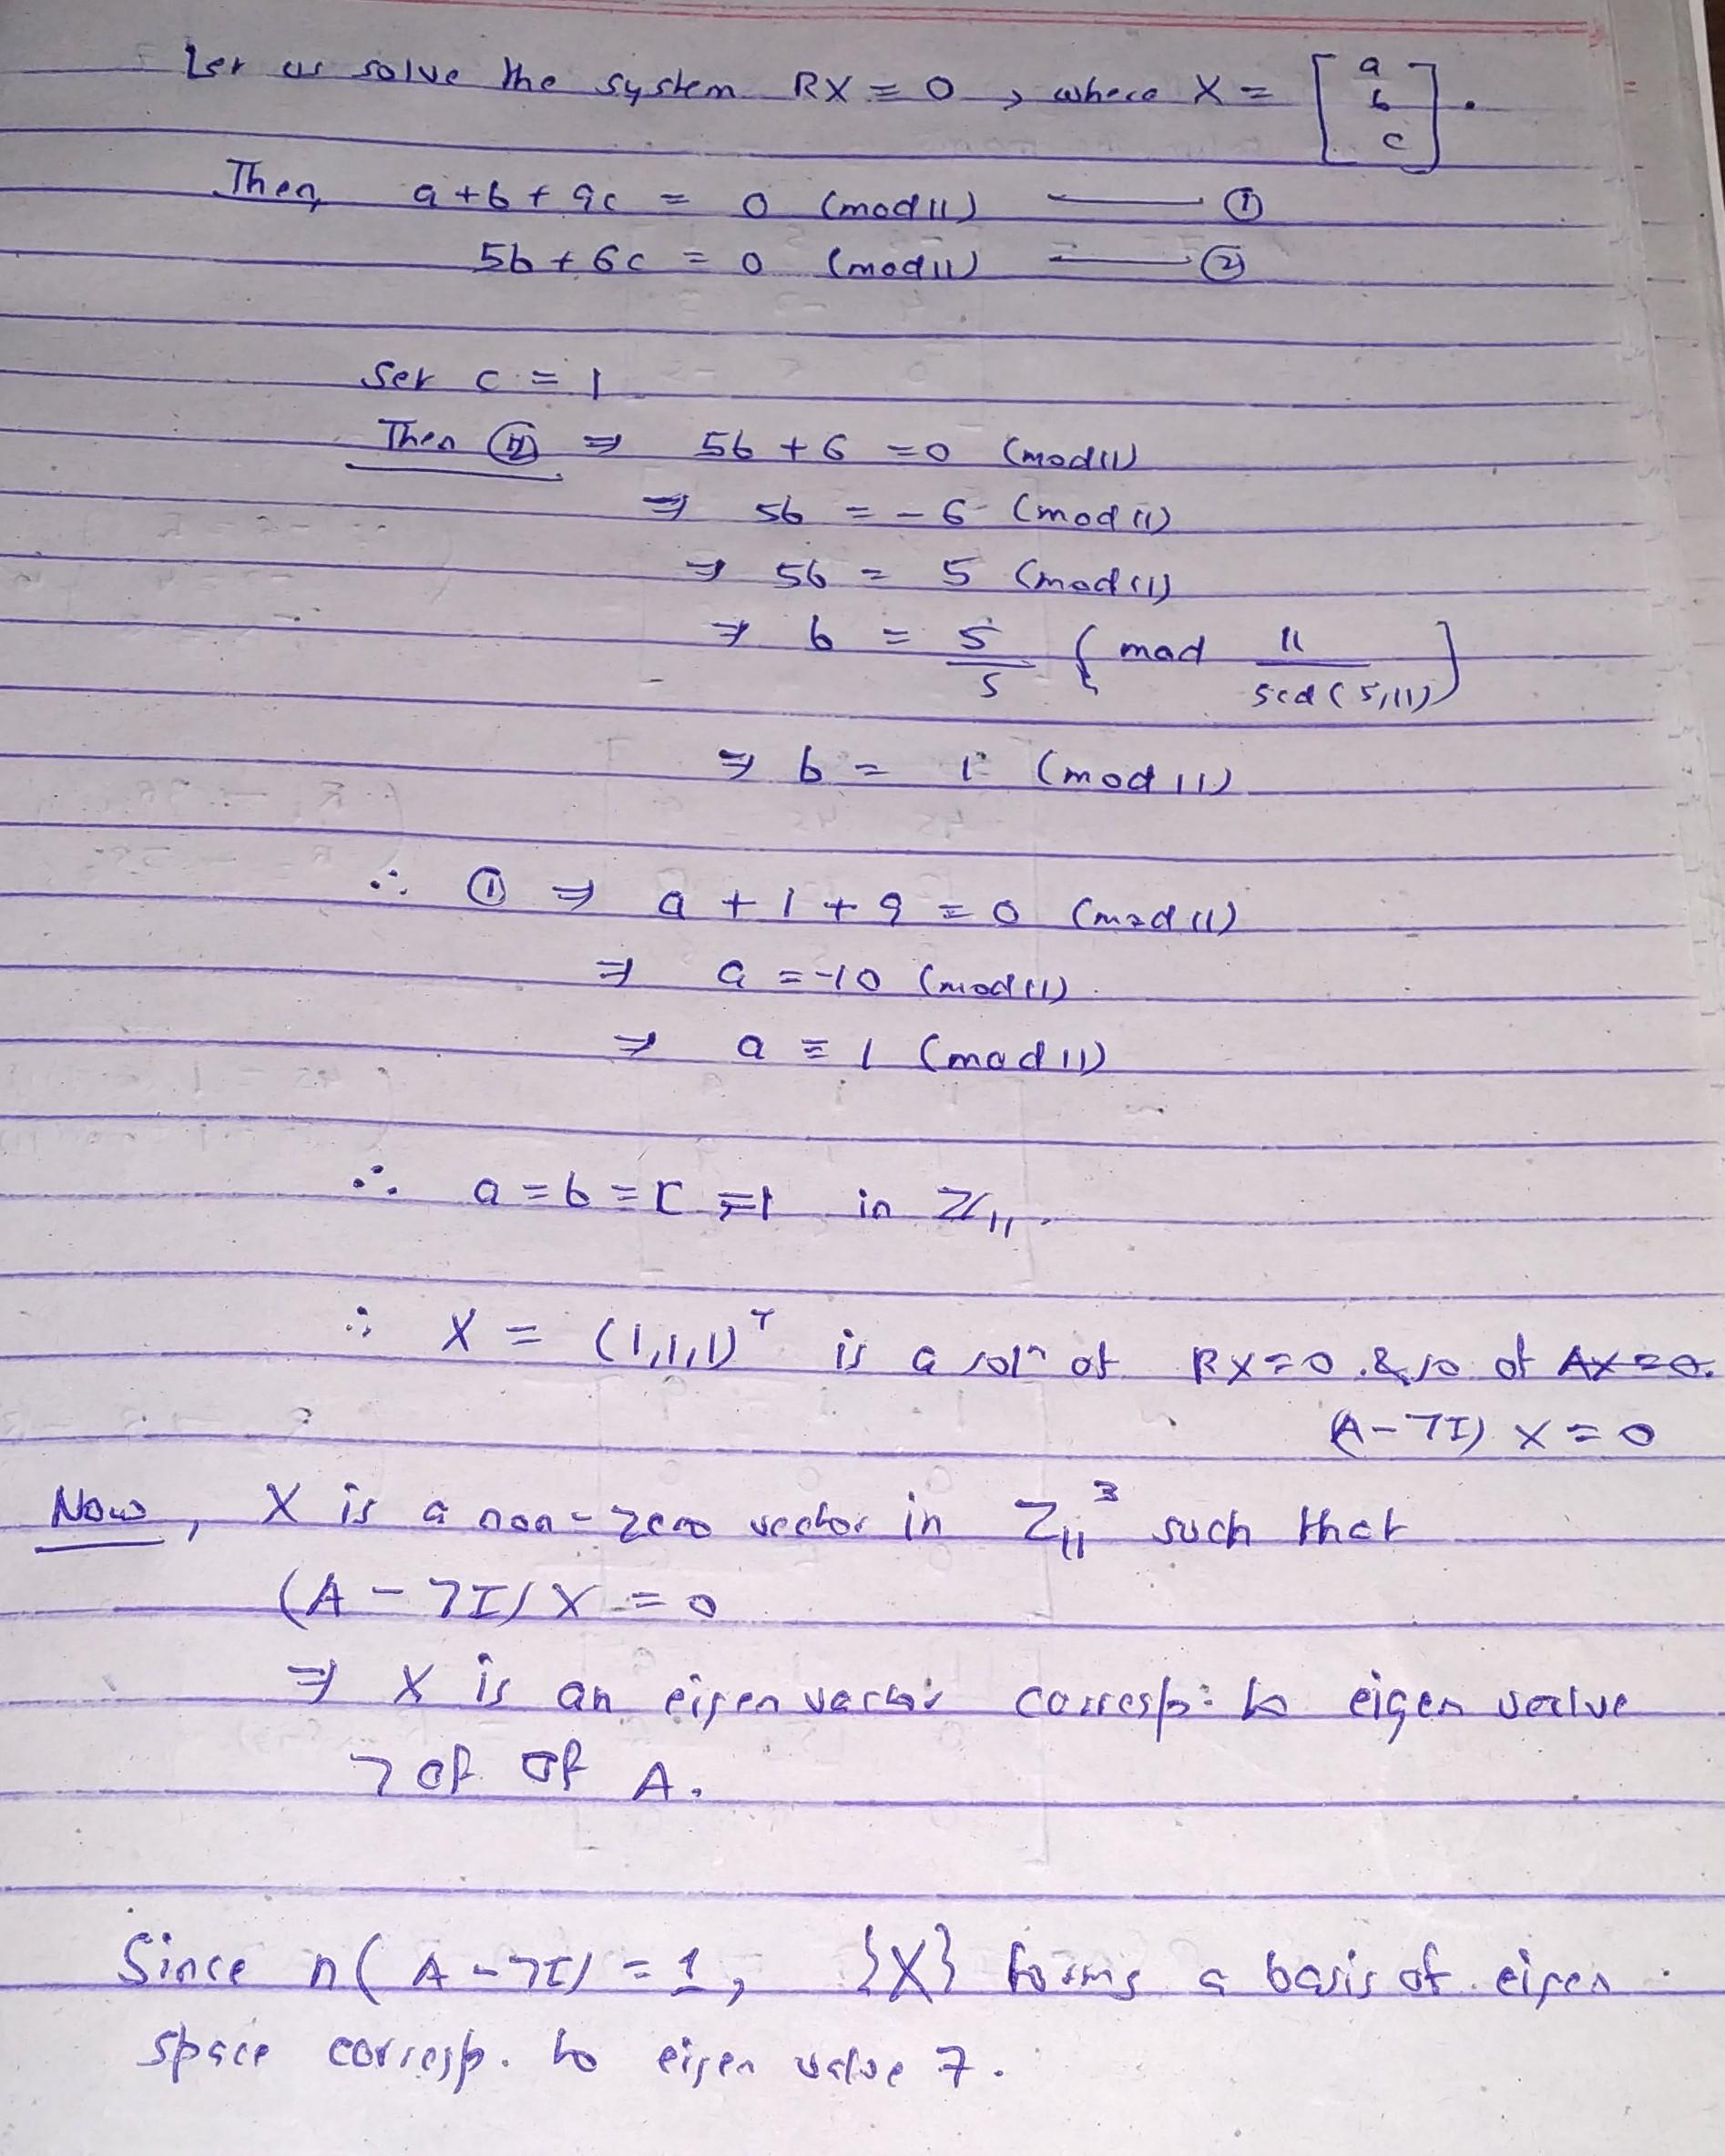 Let us solve the system RX = 0, where X = [a b c].
Then, a+b+9c = 0 (mod 11) —— ①
5b+6c = 0 (mod 11) —— ②
Set c = 1
Then ② ⇒ 5b + 6 = 0 (mod 11)
⇒ 5b = -6 (mod 11)
⇒ 5b = 5 (mod 11)
⇒ b = 5/5 {mod 11/gcd(5,11)}
⇒ b = 1 (mod 11)
∴ ① ⇒ a + 1 + 9 = 0 (mod 11)
⇒ a = -10 (mod 11)
⇒ a ≡ 1 (mod 11)
∴ a = b = c = 1 in Z₁₁.
∴ X = (1,1,1)ᵀ is a solⁿ of RX=0 & so of AX=0.
(A-7I) X = 0
Now, X is a non-zero vector in Z₁₁³ such that
(A - 7I) X = 0
⇒ X is an eigen vector corresp. to eigen value
7 of of A.
Since n(A-7I) = 1, {X} forms a basis of eigen
space corresp. to eigen value 7.